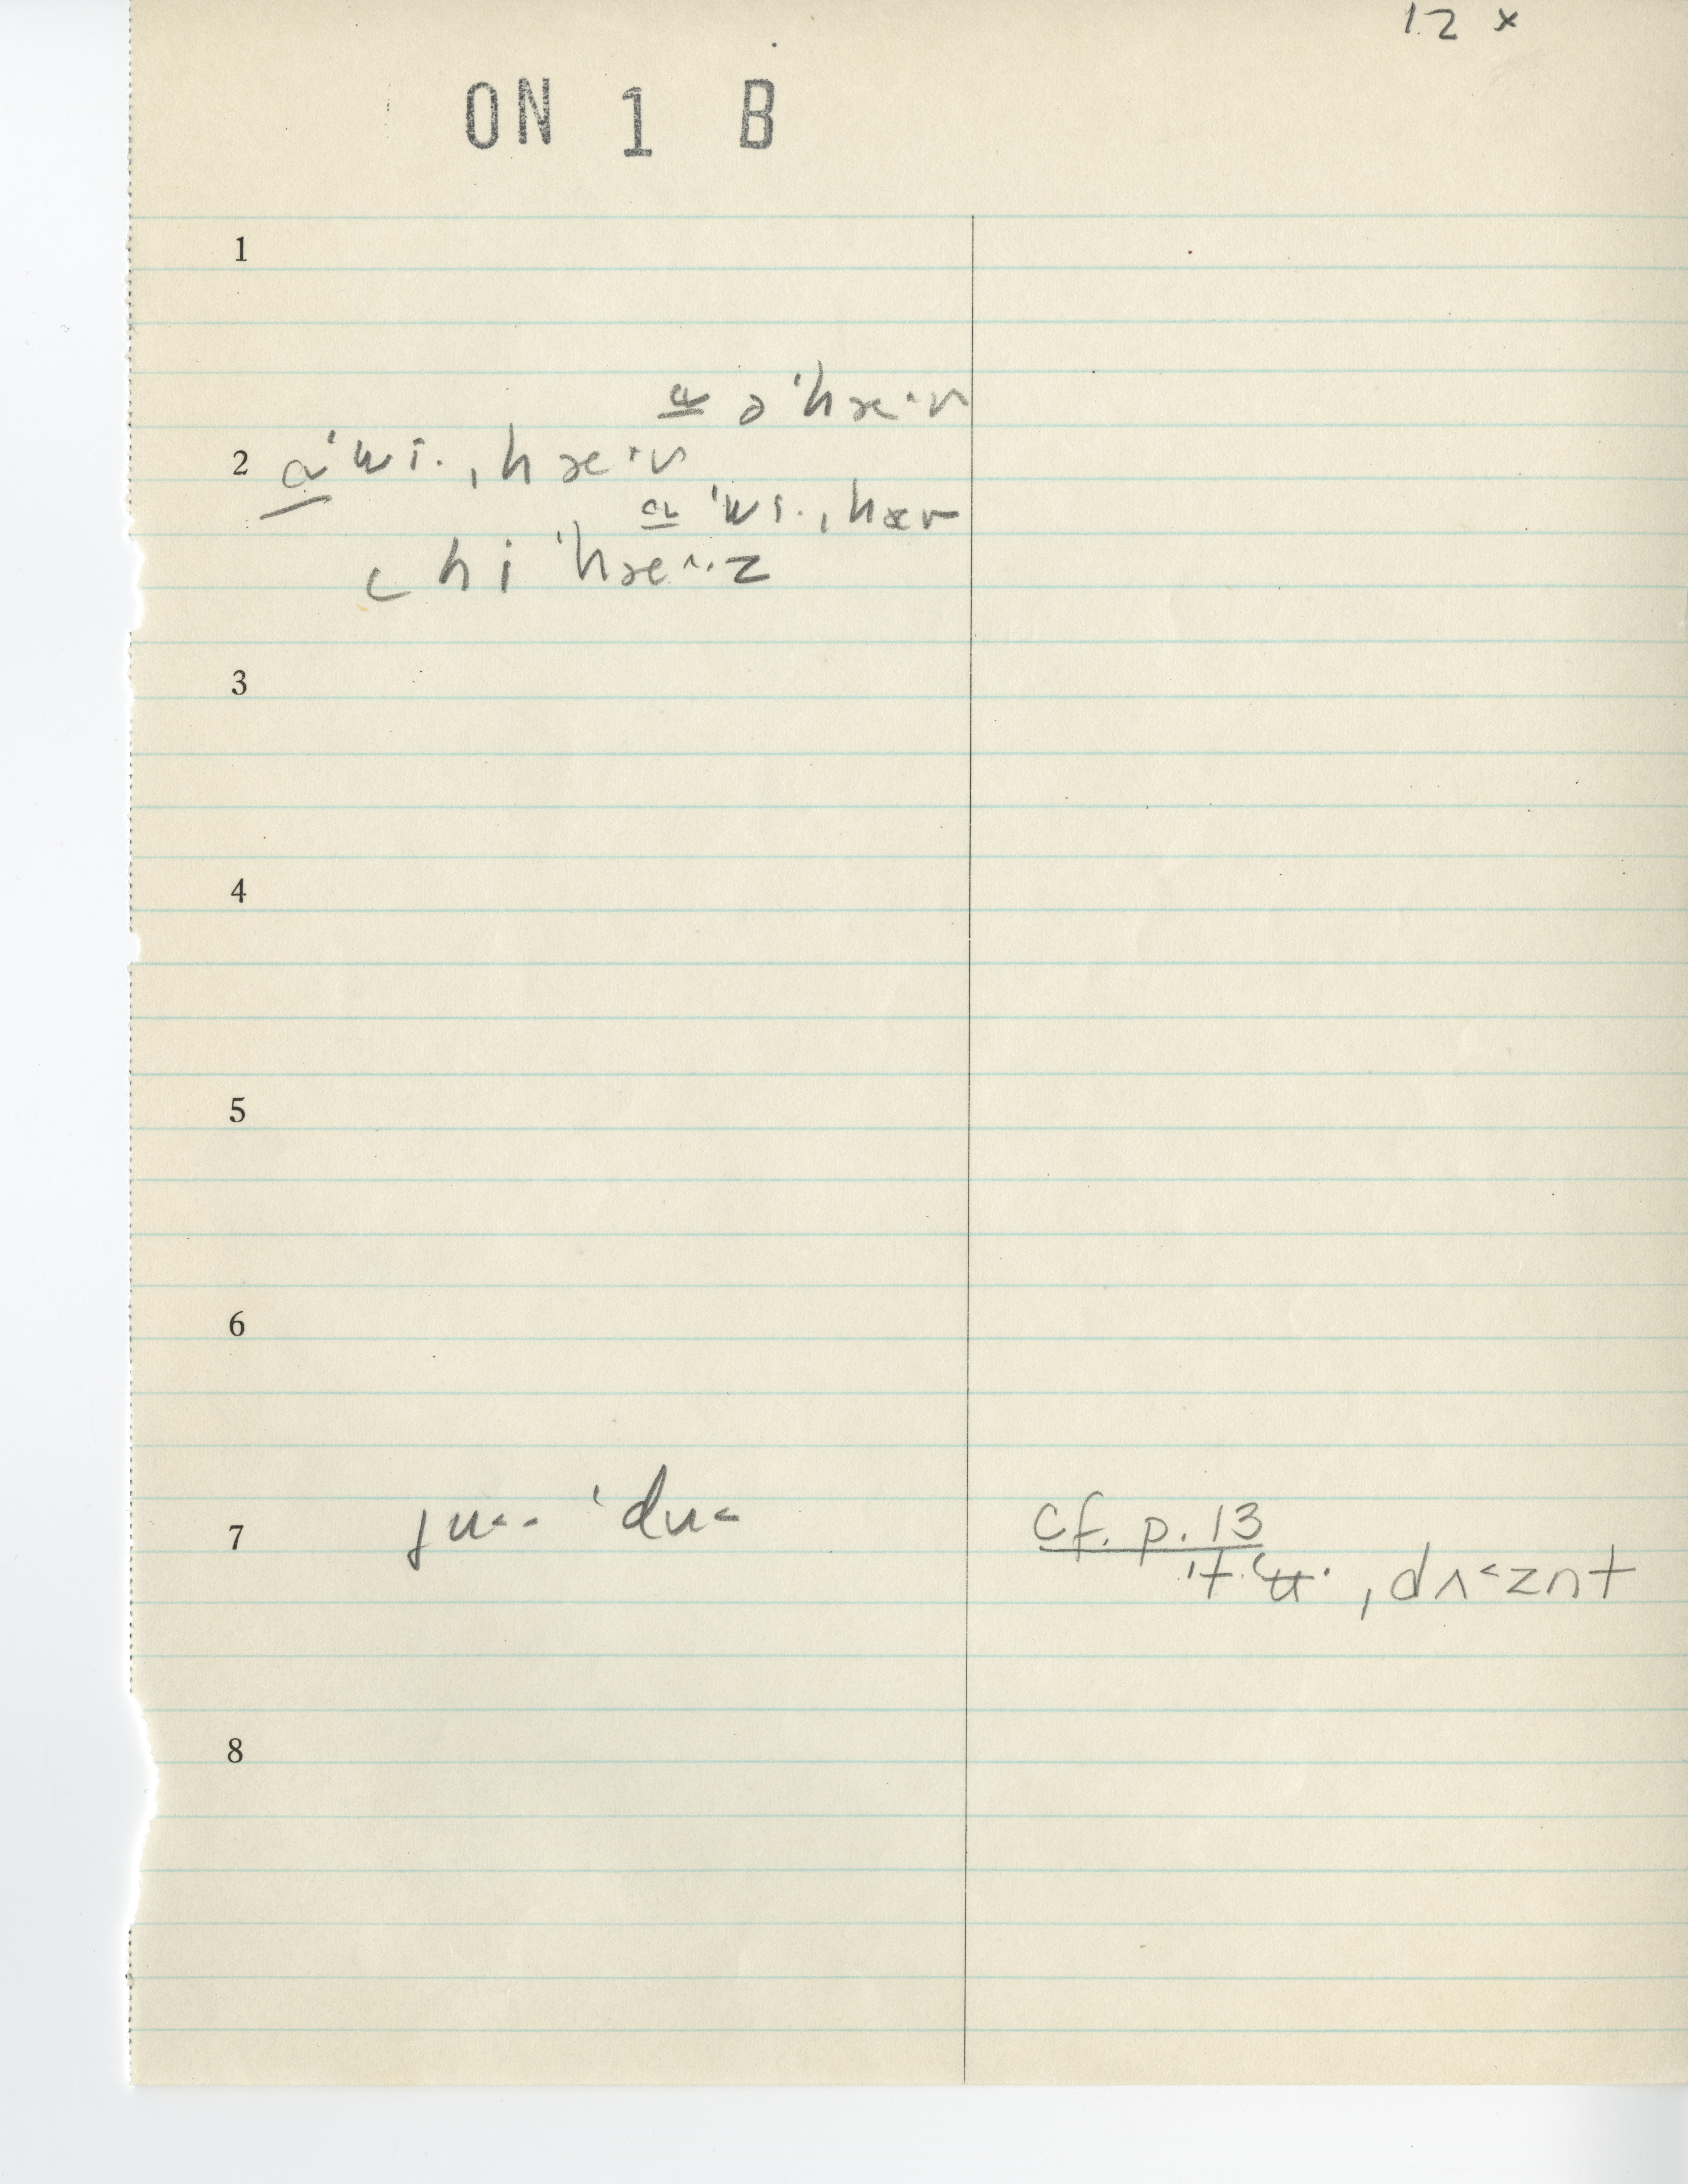 12 x
ON 1 B
1
a ə ˈhæ·v
2 a ˈwi· ˌhæ·v
a ˈwi· ˌhæv
hi ˈhæ^·z
3
4
5
6
7 ju<· ˈdu< cf. p. 13
ˌdʌ<znt
8